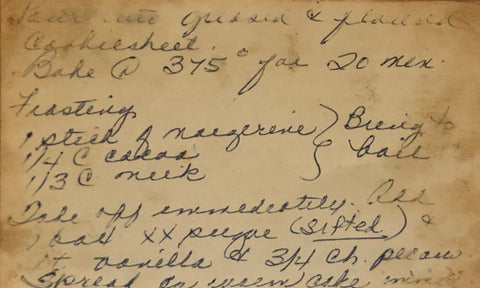 Pour into greased & floured
Cookiesheet.
Bake @ 375° for 20 min.
Frosting
1 stick of margerine } Bring to
1/4 C cocoa } boil
1/3 C milk
Take off immediately. Add
1 box XX sugar (sifted) &
1 t vanilla & 3/4 ch. pecans
Spread on warm cake